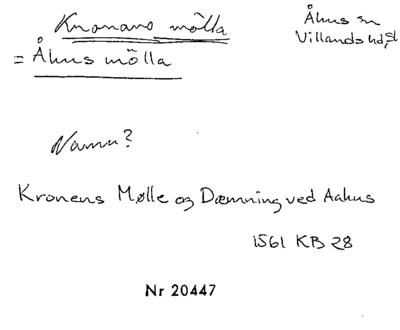 Kronans mölla
= Åhus mölla
Åhus sn
Villands hd, Sk
Namn?
Kronens Mølle og Dæmning ved Aahus
1561 KB 28
Nr 20447